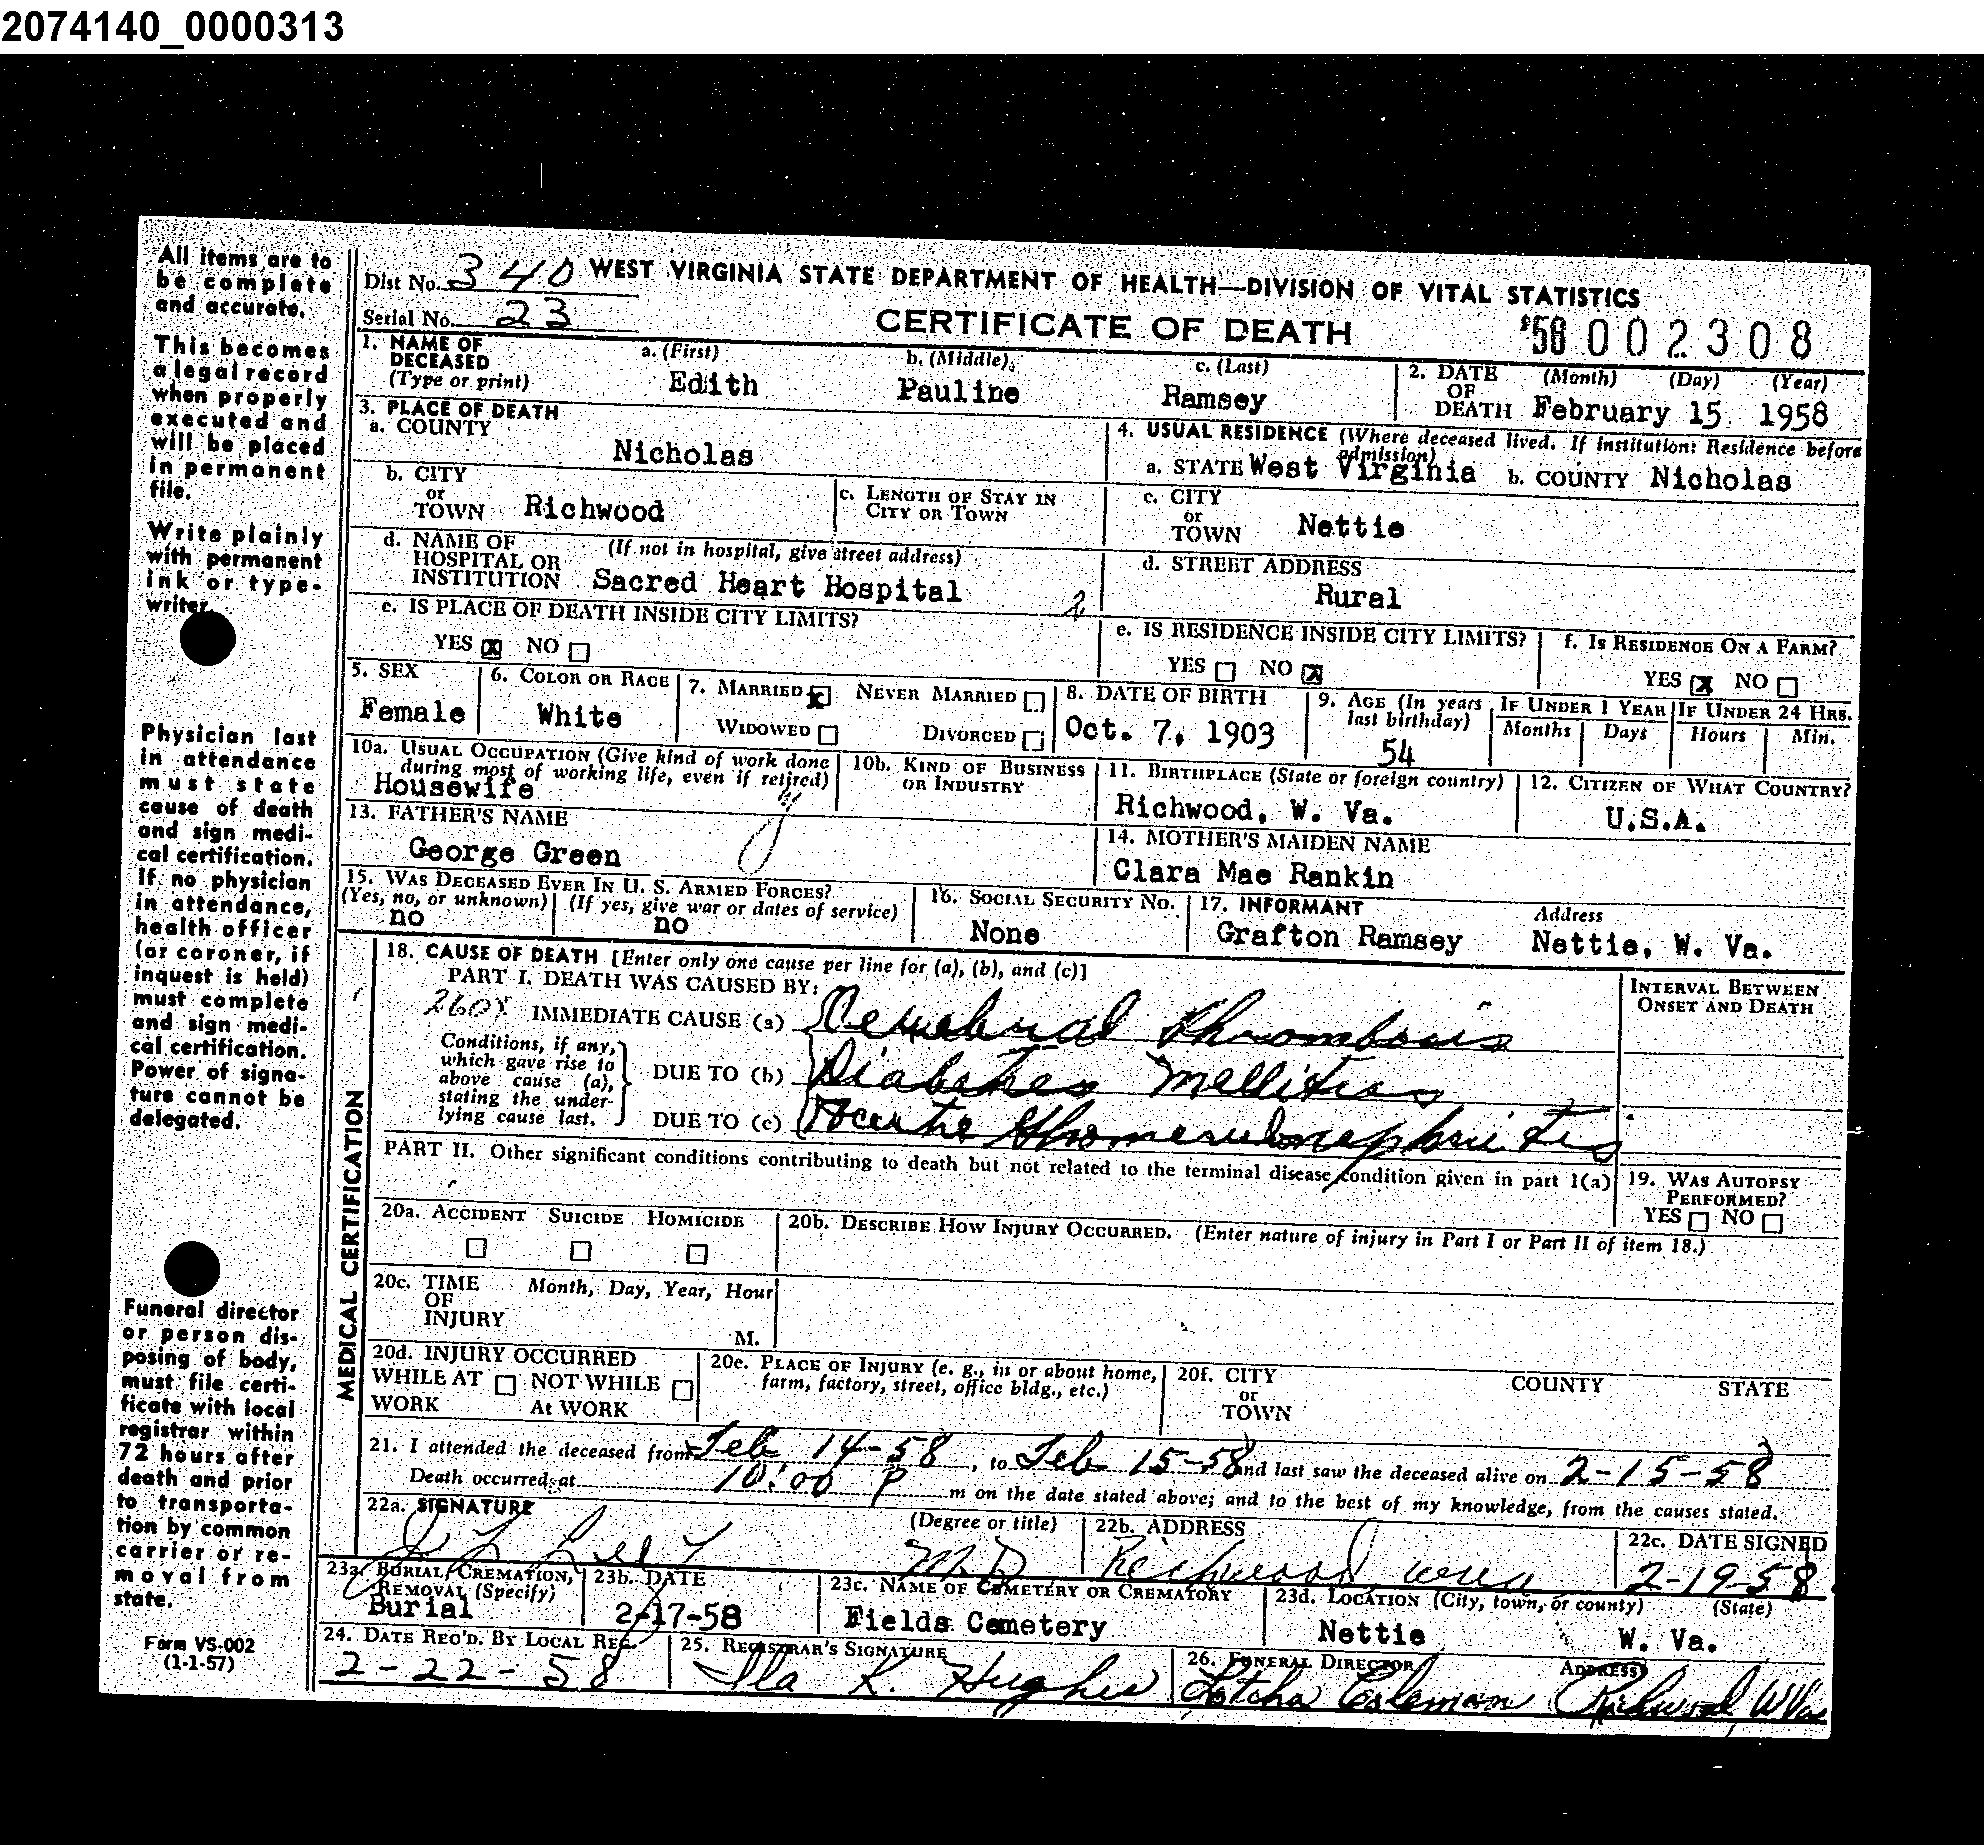 2074140_0000313
All items are to
be complete
and accurate.
This becomes
a legal record
when properly
executed and
will be placed
in permanent
file.
Write plainly
with permanent
ink or type-
writer.
Physician last
in attendance
must state
cause of death
and sign medi-
cal certification.
If no physician
in attendance,
health officer
(or coroner, if
inquest is held)
must complete
and sign medi-
cal certification.
Power of signa-
ture cannot be
delegated.
Funeral director
or person dis-
posing of body,
must file certi-
ficate with local
registrar within
72 hours after
death and prior
to transporta-
tion by common
carrier or re-
moval from
state.
Form VS-002
(1-1-57)
Dist No. 340 WEST VIRGINIA STATE DEPARTMENT OF HEALTH—DIVISION OF VITAL STATISTICS
Serial No. 23 CERTIFICATE OF DEATH '58 002308
1. NAME OF DECEASED (Type or print) a. (First) b. (Middle) c. (Last)
Edith Pauline Ramsey
2. DATE OF DEATH (Month) (Day) (Year)
February 15 1958
3. PLACE OF DEATH
a. COUNTY
Nicholas
4. USUAL RESIDENCE (Where deceased lived. If institution: Residence before admission)
a. STATE West Virginia b. COUNTY Nicholas
b. CITY or TOWN Richwood
c. LENGTH OF STAY IN CITY OR TOWN
c. CITY or TOWN Nettie
d. NAME OF HOSPITAL OR INSTITUTION (If not in hospital, give street address)
Sacred Heart Hospital 2
d. STREET ADDRESS
Rural
e. IS PLACE OF DEATH INSIDE CITY LIMITS?
YES X NO
e. IS RESIDENCE INSIDE CITY LIMITS?
YES NO X
f. IS RESIDENCE ON A FARM?
YES X NO
5. SEX
Female
6. COLOR OR RACE
White
7. MARRIED X NEVER MARRIED
WIDOWED DIVORCED
8. DATE OF BIRTH
Oct. 7, 1903
9. AGE (In years last birthday)
54
IF UNDER 1 YEAR IF UNDER 24 HRS.
Months Days Hours Min.
10a. USUAL OCCUPATION (Give kind of work done during most of working life, even if retired)
Housewife
10b. KIND OF BUSINESS OR INDUSTRY
11. BIRTHPLACE (State or foreign country)
Richwood, W. Va.
12. CITIZEN OF WHAT COUNTRY?
U.S.A.
13. FATHER'S NAME
George Green
14. MOTHER'S MAIDEN NAME
Clara Mae Rankin
15. WAS DECEASED EVER IN U. S. ARMED FORCES?
(Yes, no, or unknown) (If yes, give war or dates of service)
no no
16. SOCIAL SECURITY NO.
None
17. INFORMANT Address
Grafton Ramsey Nettie, W. Va.
MEDICAL CERTIFICATION
18. CAUSE OF DEATH [Enter only one cause per line for (a), (b), and (c)]
PART I. DEATH WAS CAUSED BY:
INTERVAL BETWEEN ONSET AND DEATH
260X IMMEDIATE CAUSE (a) Cerebral Thrombosis
Conditions, if any, which gave rise to above cause (a), stating the under-lying cause last.
DUE TO (b) Diabetes Mellitus
DUE TO (c) Acute Glomerulonephritis
PART II. Other significant conditions contributing to death but not related to the terminal disease condition given in part 1(a)
19. WAS AUTOPSY PERFORMED?
YES NO
20a. ACCIDENT SUICIDE HOMICIDE
20b. DESCRIBE HOW INJURY OCCURRED. (Enter nature of injury in Part I or Part II of item 18.)
20c. TIME OF INJURY Month, Day, Year, Hour
M.
20d. INJURY OCCURRED
WHILE AT WORK NOT WHILE At WORK
20e. PLACE OF INJURY (e. g., in or about home, farm, factory, street, office bldg., etc.)
20f. CITY or TOWN COUNTY STATE
21. I attended the deceased from Feb 14-58, to Feb 15-58 and last saw the deceased alive on 2-15-58
Death occurred at 10:00 P m on the date stated above; and to the best of my knowledge, from the causes stated.
22a. SIGNATURE (Degree or title)
M.D
22b. ADDRESS
Richwood
22c. DATE SIGNED
2-19-58
23a. BURIAL, CREMATION, REMOVAL (Specify)
Burial
23b. DATE
2-17-58
23c. NAME OF CEMETERY OR CREMATORY
Fields Cemetery
23d. LOCATION (City, town, or county) (State)
Nettie W. Va.
24. DATE REC'D. BY LOCAL REG.
2-22-58
25. REGISTRAR'S SIGNATURE
Ila K. Hughes
26. FUNERAL DIRECTOR ADDRESS
Coleman Richwood, WVa